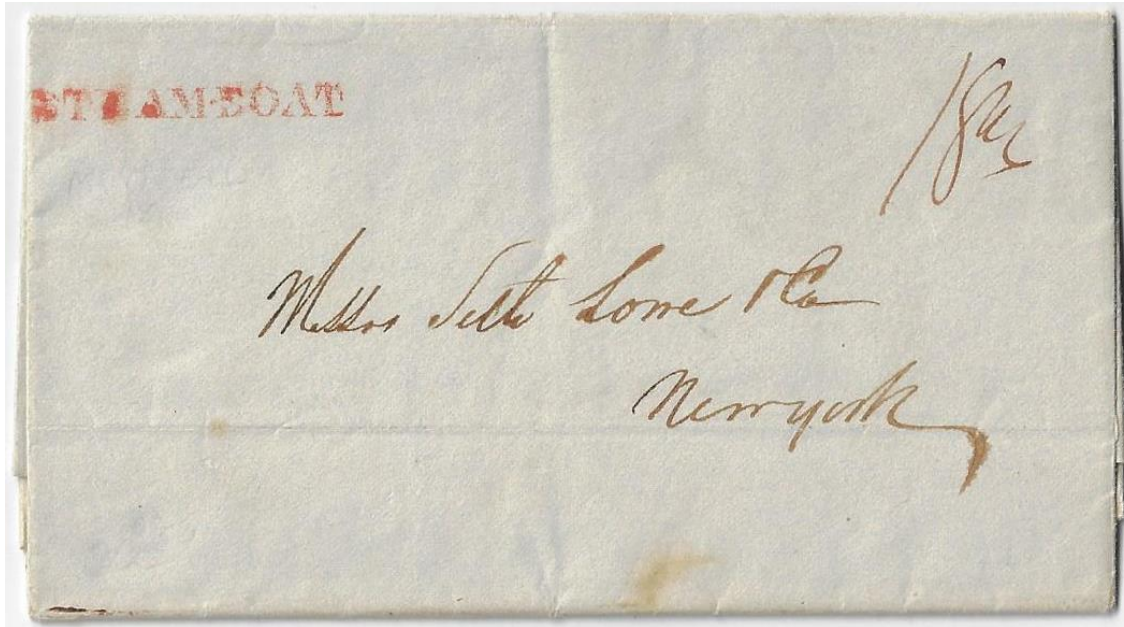 STEAM·BOAT
18¾
Messrs Seth Lowe & Co
Newyork